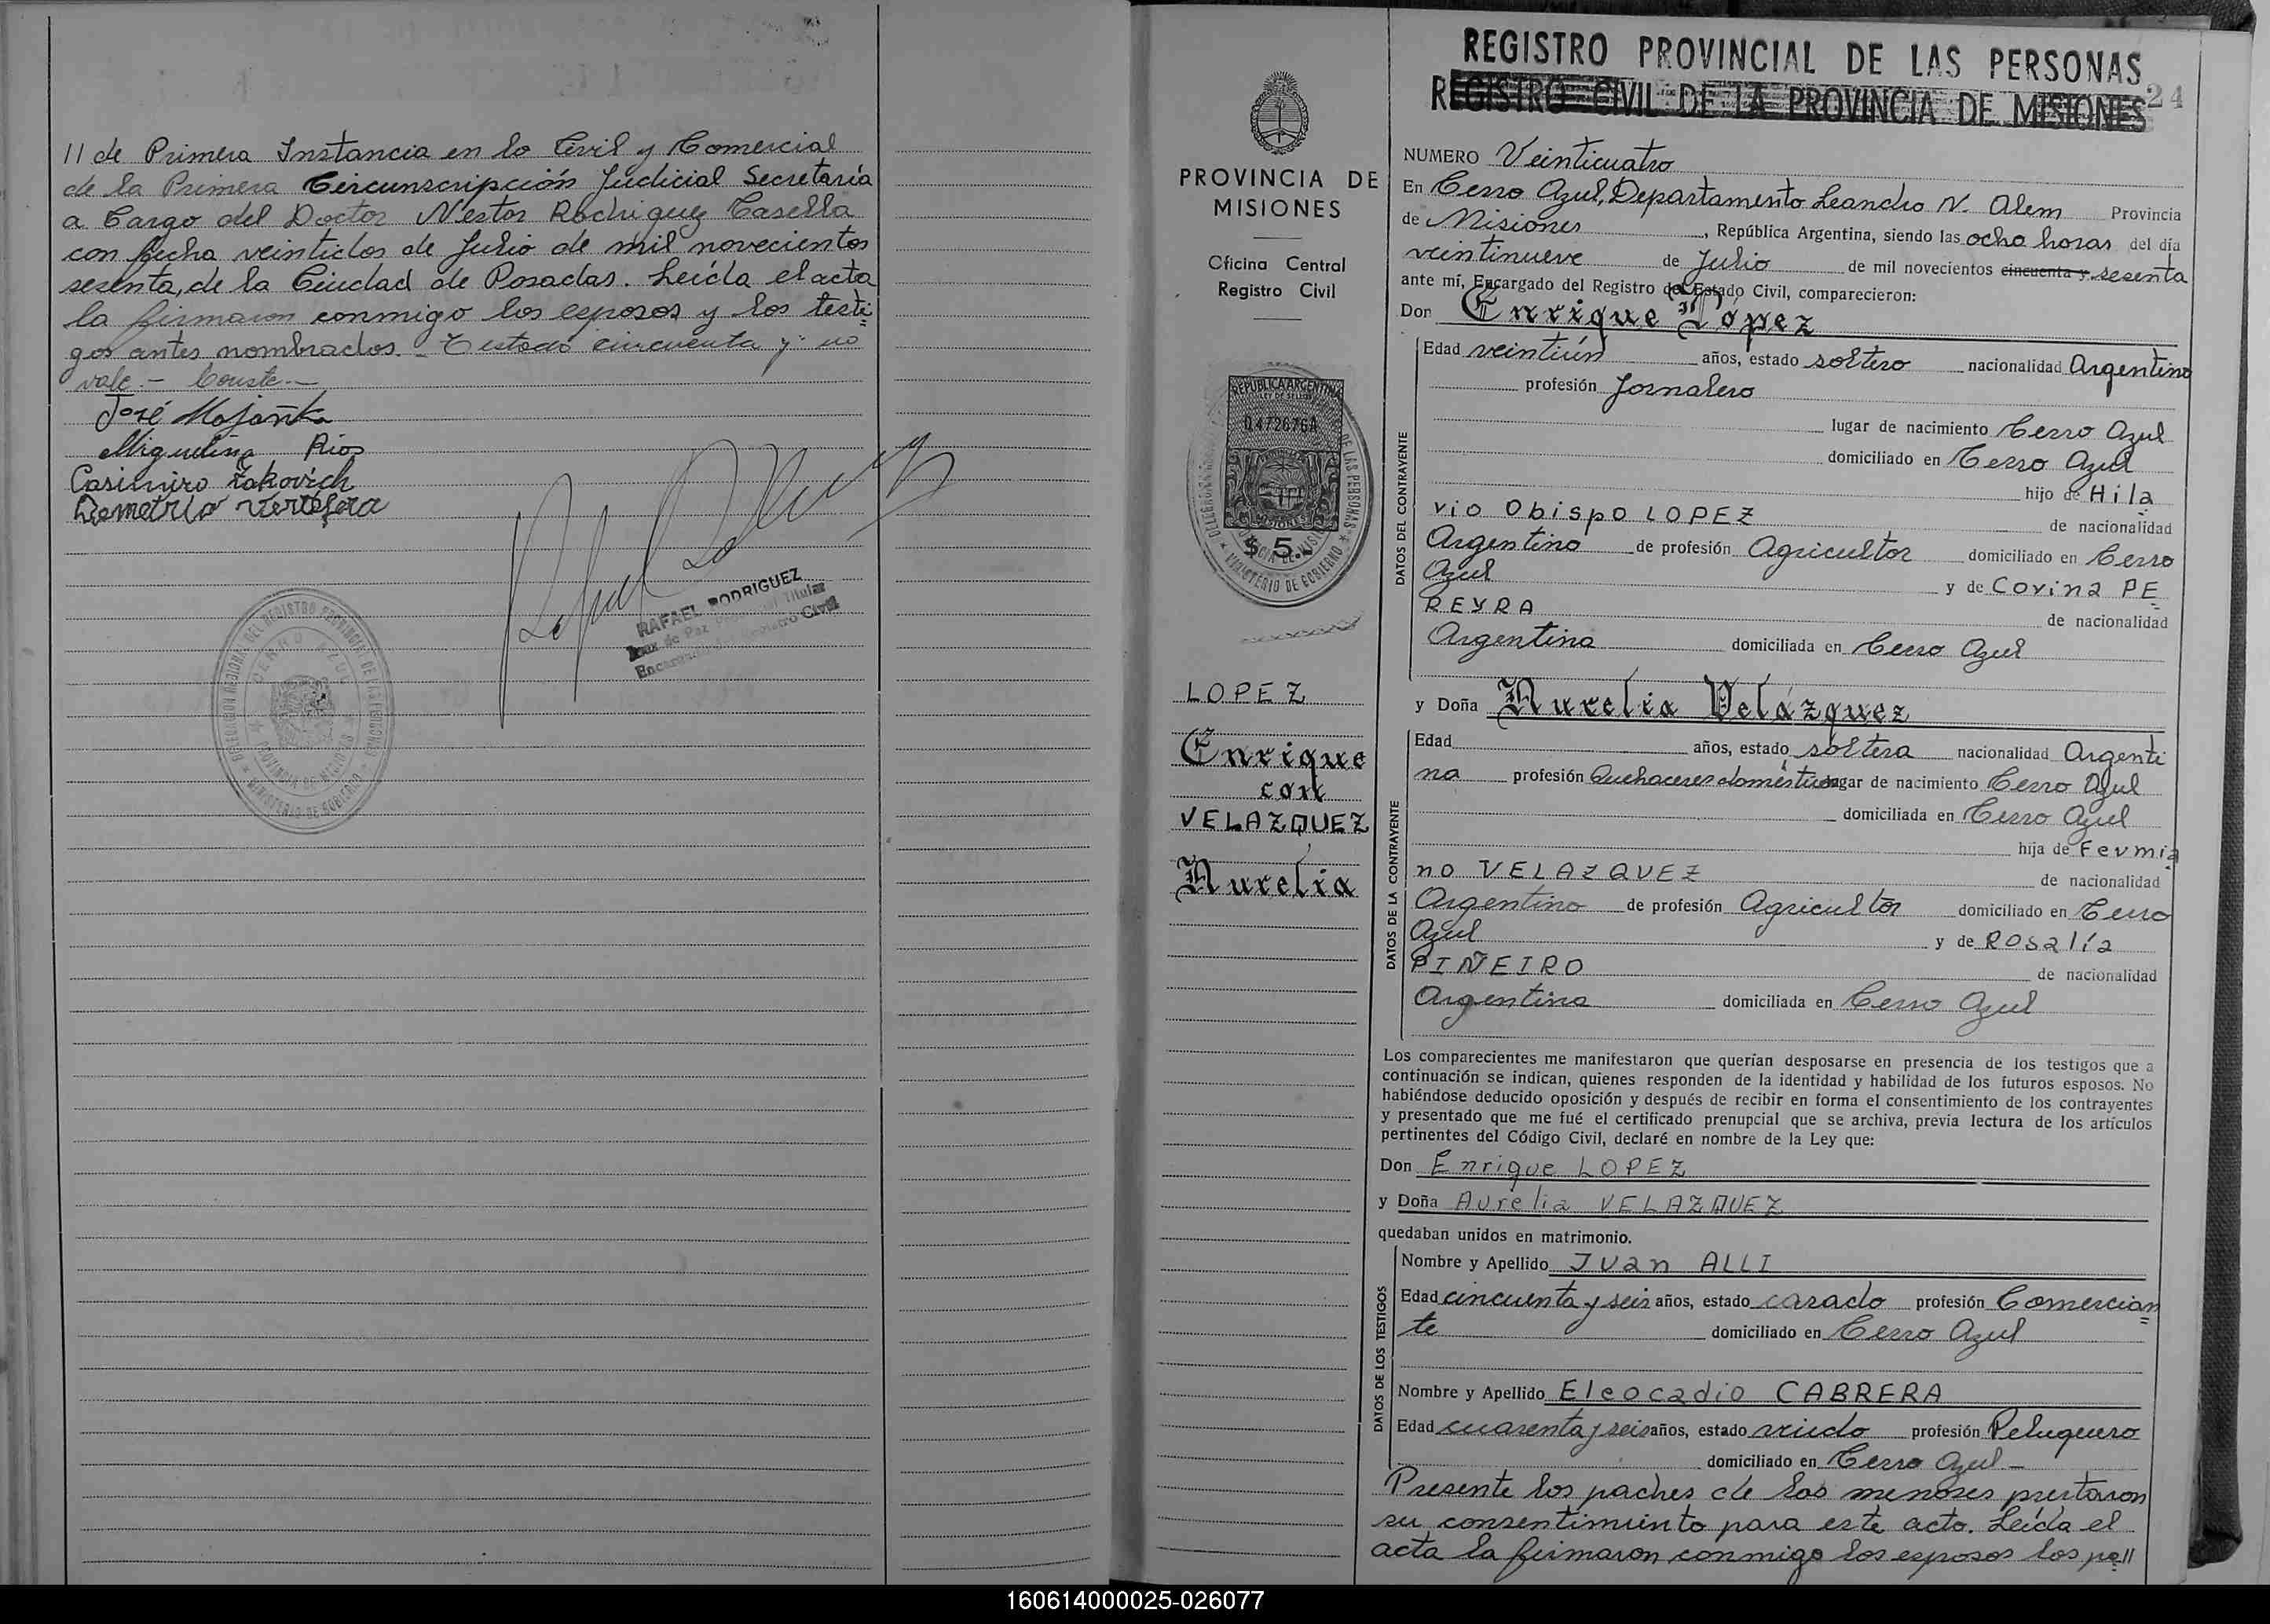 11 de Primera Instancia en lo Civil y Comercial
de la Primera Circunscripción Judicial Secretaría
a Cargo del Doctor Nestor Rodriguez Casella
con fecha veintidos de Julio de mil novecientos
sesenta, de la Ciudad de Posadas. Leída el acta
la firmaron conmigo los esposos y los testi
gos antes nombrados. - Testado cincuenta y: no
vale. - Conste. -
José
Miguelina Rios
Casimiro Zakovich
Demetrio
RAFAEL RODRIGUEZ
Juez de Paz Titular
Encargado del Registro Civil
DELEGACION REGIONAL DEL REGISTRO PROVINCIAL DE LAS PERSONAS
CERRO AZUL
PROVINCIA DE MISIONES
MINISTERIO DE GOBIERNO
PROVINCIA DE
MISIONES
Oficina Central
Registro Civil
REPUBLICA ARGENTINA
LEY DE SELLOS
0472676A
MISIONES
$ 5.
DE LAS PERSONAS
MINISTERIO DE GOBIERNO
LOPEZ
Enrique
con
VELAZQUEZ
Aurelia
REGISTRO PROVINCIAL DE LAS PERSONAS
REGISTRO CIVIL DE LA PROVINCIA DE MISIONES
24
NUMERO Veinticuatro
En Cerro Azul, Departamento Leandro N. Alem Provincia
de Misiones, República Argentina, siendo las ocho horas del día
veintinueve de Julio de mil novecientos cincuenta y sesenta
ante mí, Encargado del Registro del Estado Civil, comparecieron:
Don Enrique López
DATOS DEL CONTRAYENTE
Edad veintiún años, estado soltero nacionalidad Argentino
profesión Jornalero
lugar de nacimiento Cerro Azul
domiciliado en Cerro Azul
hijo de Hila
rio Obispo LOPEZ
de nacionalidad
Argentino de profesión Agricultor domiciliado en Cerro
Azul y de Corina PE
REYRA
de nacionalidad
Argentina domiciliada en Cerro Azul
y Doña Aurelia Velázquez
DATOS DE LA CONTRAYENTE
Edad años, estado soltera nacionalidad Argenti
na profesión Quehaceres domésticos lugar de nacimiento Cerro Azul
domiciliada en Cerro Azul
hija de Fermia
no VELAZQUEZ de nacionalidad
Argentino de profesión Agricultor domiciliado en Cerro
Azul y de Rosalía
PIÑEIRO de nacionalidad
Argentina domiciliada en Cerro Azul
Los comparecientes me manifestaron que querían desposarse en presencia de los testigos que a
continuación se indican, quienes responden de la identidad y habilidad de los futuros esposos. No
habiéndose deducido oposición y después de recibir en forma el consentimiento de los contrayentes
y presentado que me fué el certificado prenupcial que se archiva, previa lectura de los artículos
pertinentes del Código Civil, declaré en nombre de la Ley que:
Don Enrique LOPEZ
y Doña Aurelia VELAZQUEZ
quedaban unidos en matrimonio.
DATOS DE LOS TESTIGOS
Nombre y Apellido Juan ALLI
Edad cincuenta y seis años, estado casado profesión Comercian
te domiciliado en Cerro Azul
Nombre y Apellido Eleocadio CABRERA
Edad cuarenta y seis años, estado viudo profesión Peluquero
domiciliado en Cerro Azul -
Presente los padres de los menores prestaron
su consentimiento para este acto. Leída el
acta la firmaron conmigo los esposos los pa//
160614000025-026077